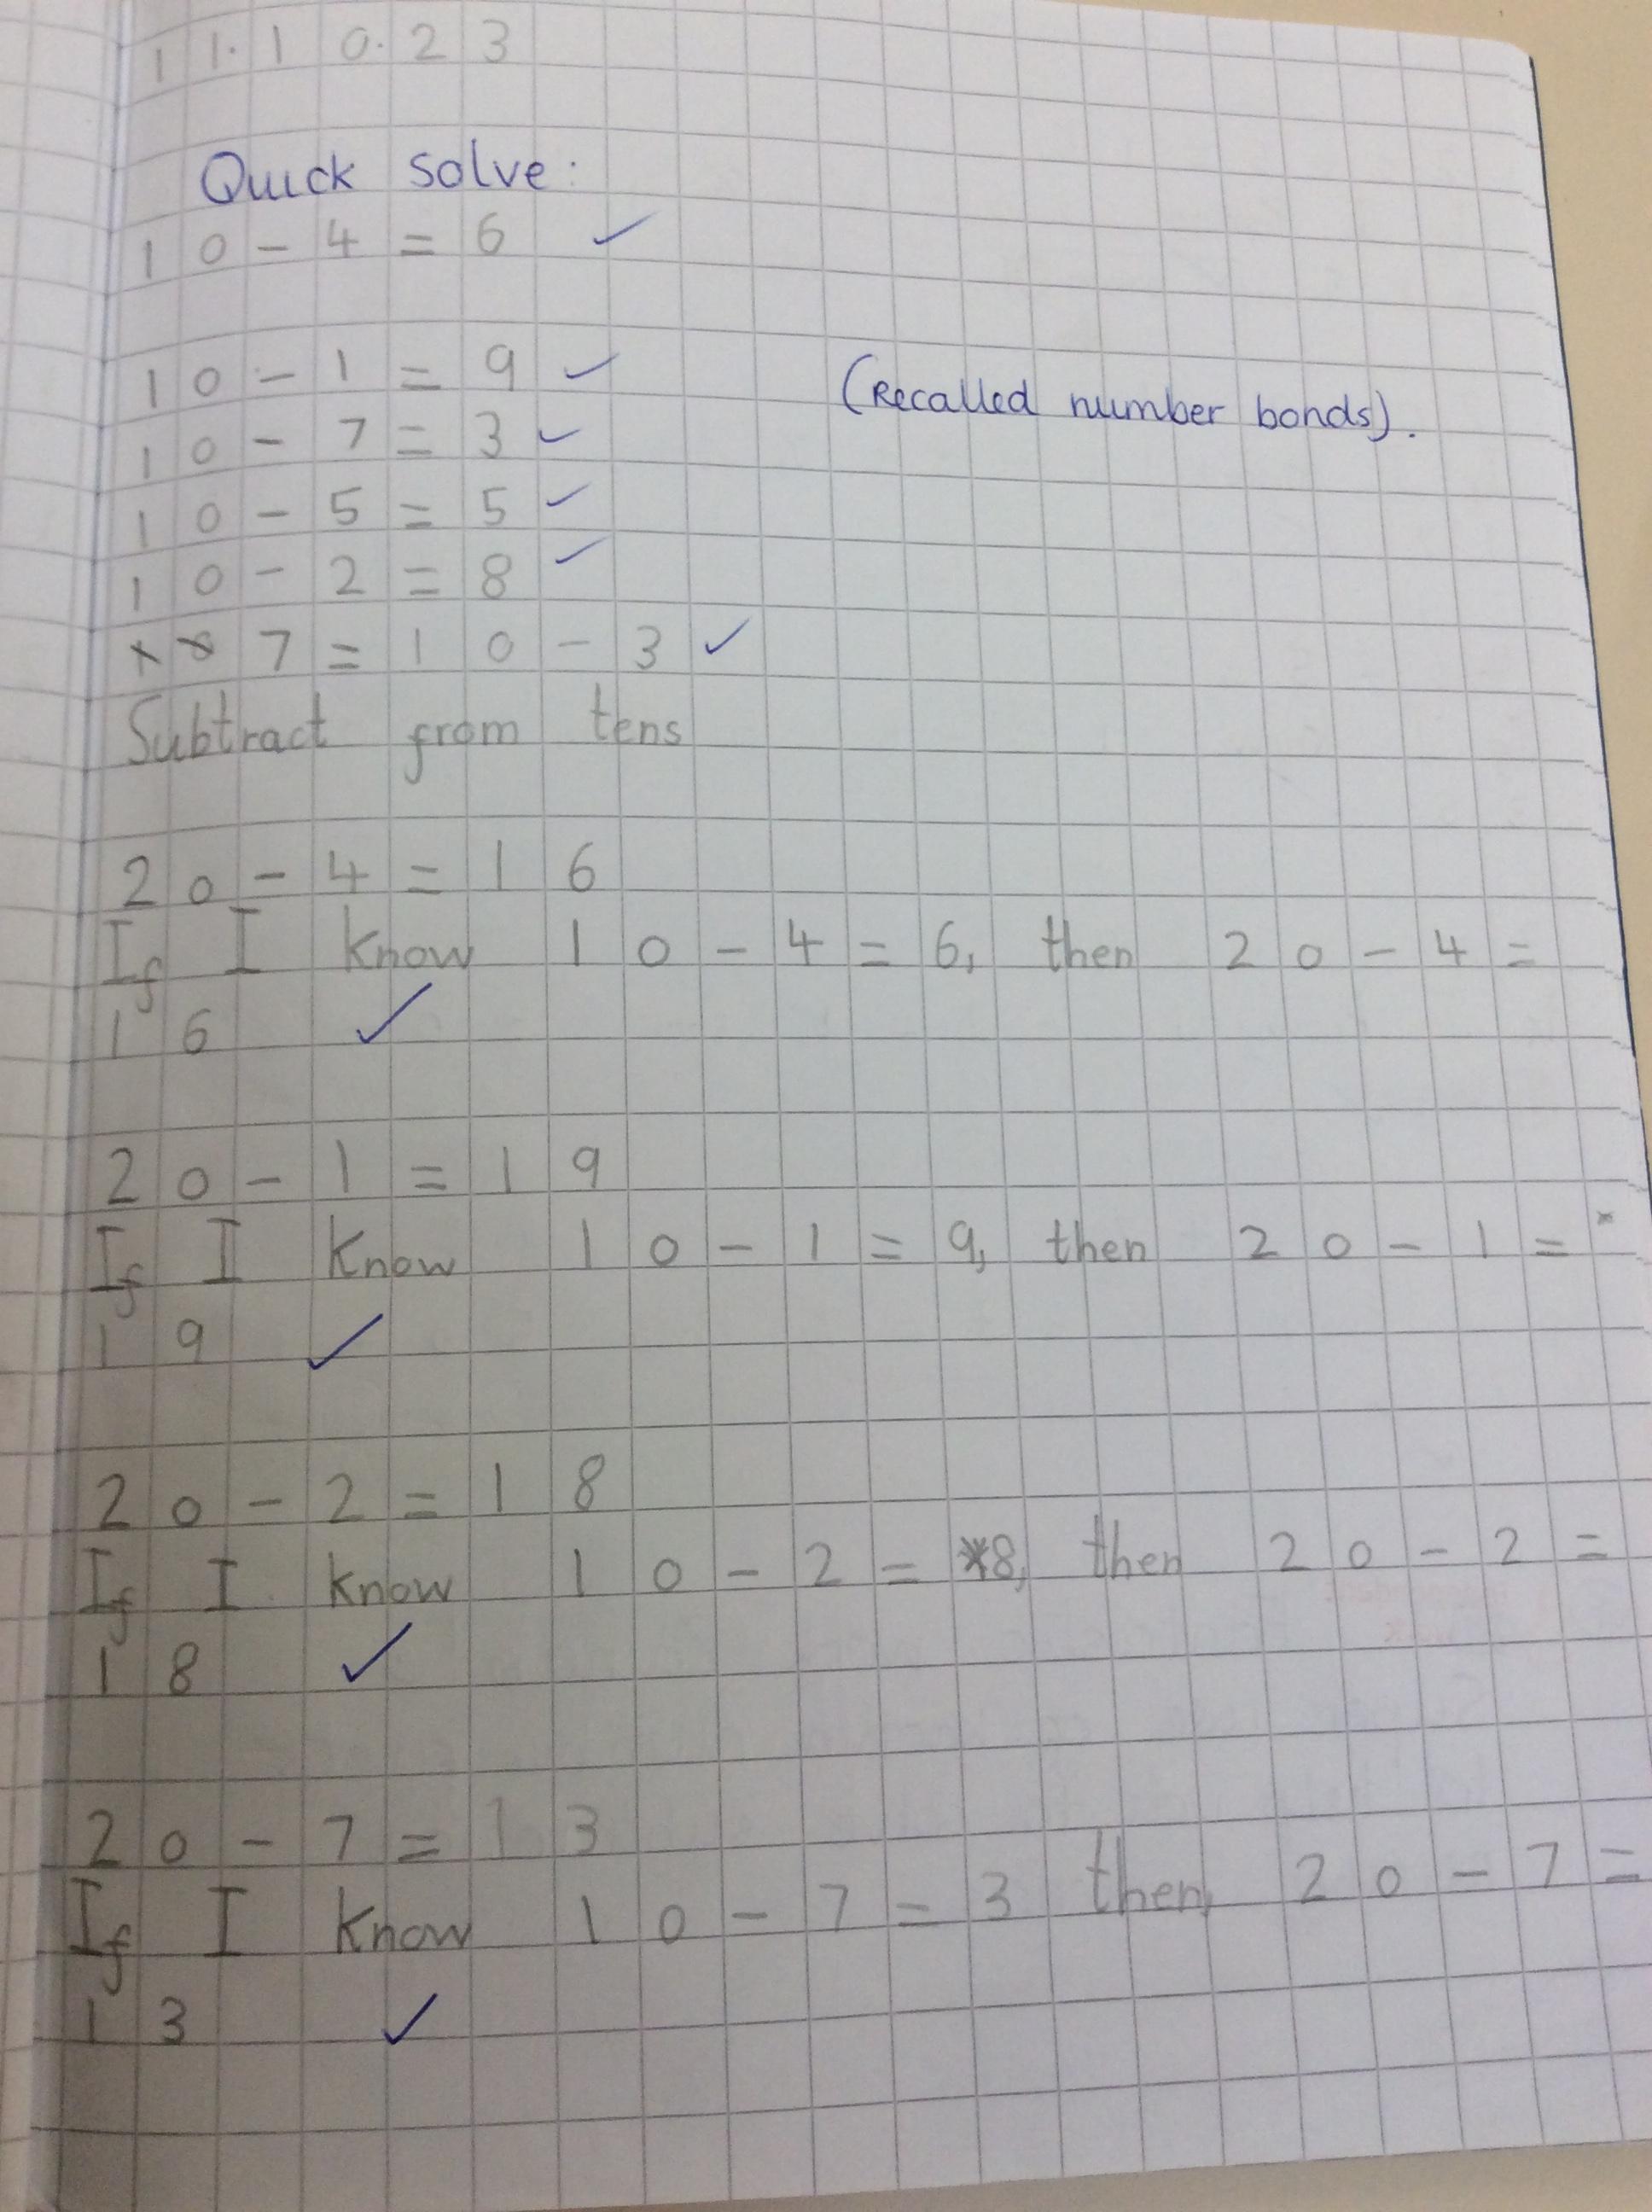 11.10.23
Quick solve:
10-4=6 ✓
10-1=9 ✓
(Recalled number bonds).
10-7=3 ✓
10-5=5 ✓
10-2=8 ✓
7=10-3 ✓
Subtract from tens
20-4=16
If I know 10-4=6, then 20-4=
16 ✓
20-1=19
If I know 10-1=9, then 20-1=
19 ✓
20-2=18
If I know 10-2=8, then 20-2=
18 ✓
20-7=13
If I know 10-7=3 then, 20-7=
13 ✓